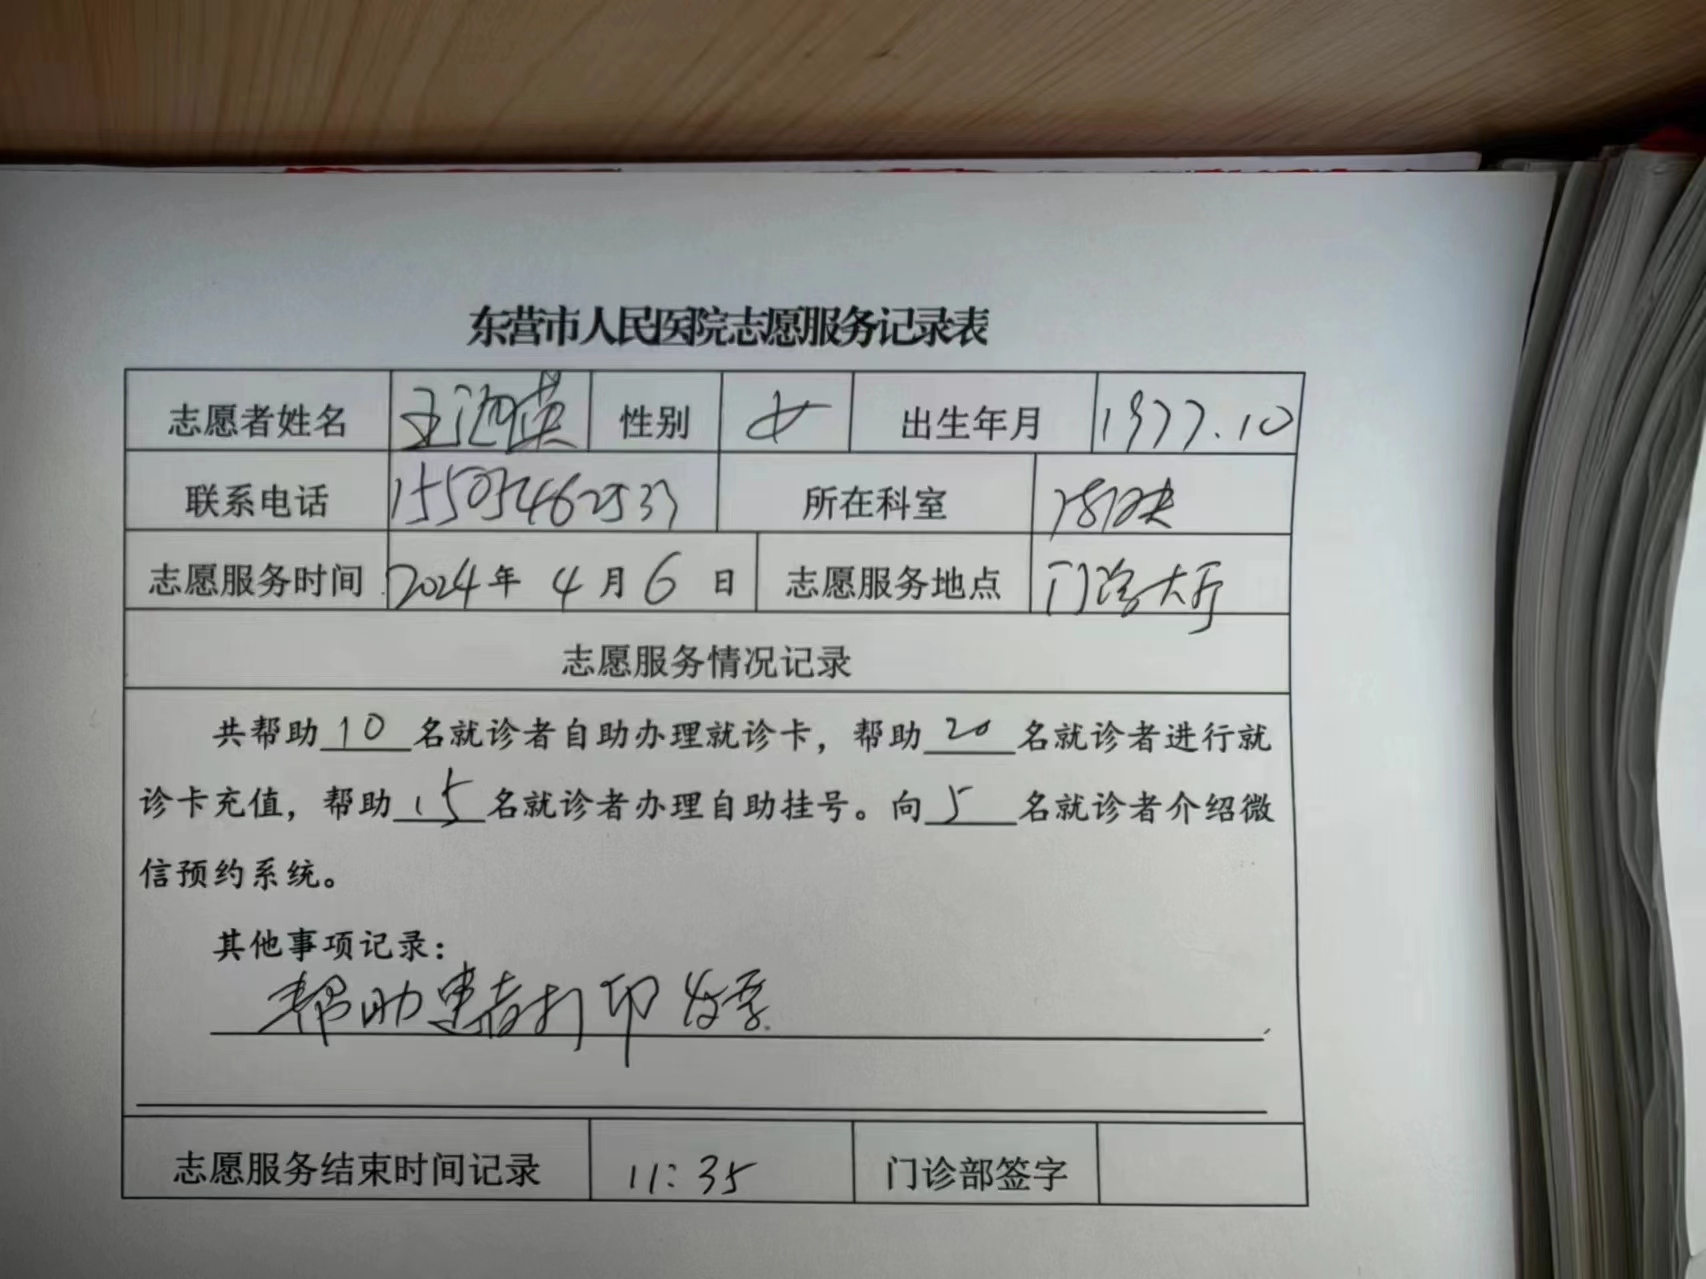 东营市人民医院志愿服务记录表
志愿者姓名 王海英 性别 女 出生年月 1977.10
联系电话 15505462533 所在科室
志愿服务时间 2024年 4月6日 志愿服务地点 门诊大厅
志愿服务情况记录
共帮助10名就诊者自助办理就诊卡，帮助20名就诊者进行就
诊卡充值，帮助15名就诊者办理自助挂号。向5名就诊者介绍微
信预约系统。
其他事项记录：
帮助患者打印发票.
志愿服务结束时间记录 11:35 门诊部签字